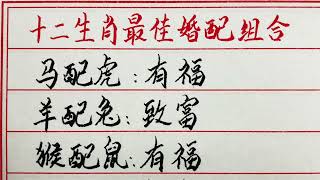 十二生肖最佳婚配组合
马配虎：有福
羊配兔：致富
猴配鼠：有福